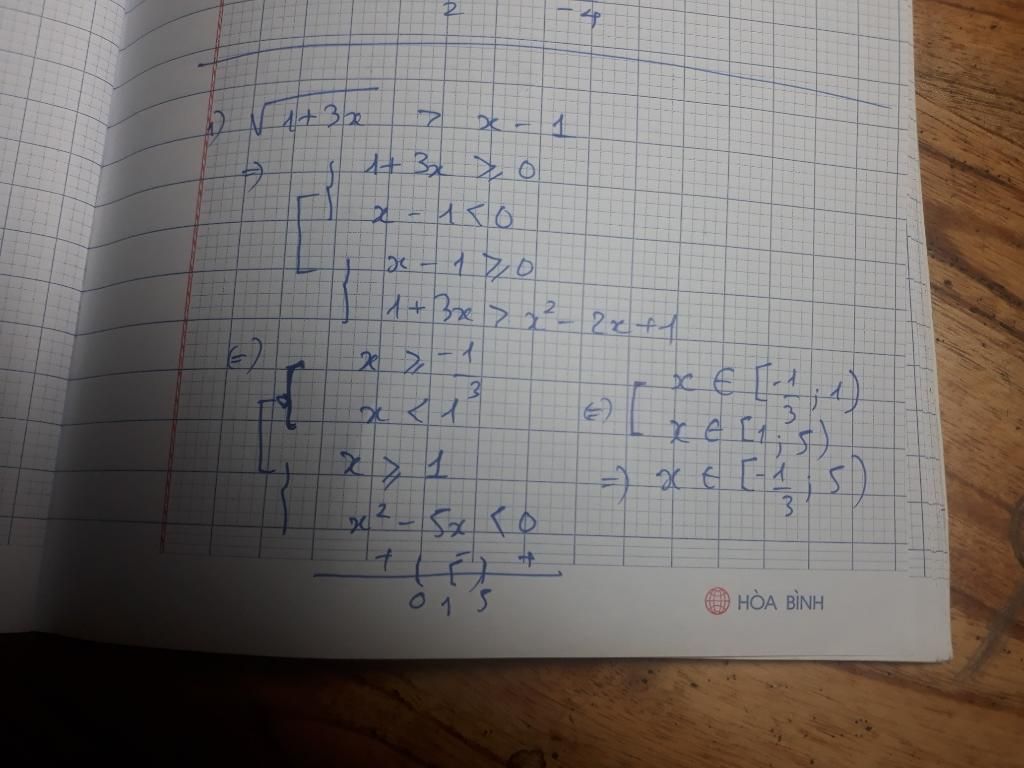 2 -4
1) √(1+3x) > x - 1
=) { 1+3x ⩾ 0
[ { x - 1 < 0
{ x - 1 ⩾ 0
1+3x > x² - 2x+1
(=) x ⩾ -1/3
x < 1
x ⩾ 1
x² - 5x < 0
+ ( [ - ) +
0 1 5
(=) [ x ∈ [-1/3 ; 1)
x ∈ [1 ; 5)
=) x ∈ [-1/3 ; 5)
HÒA BÌNH